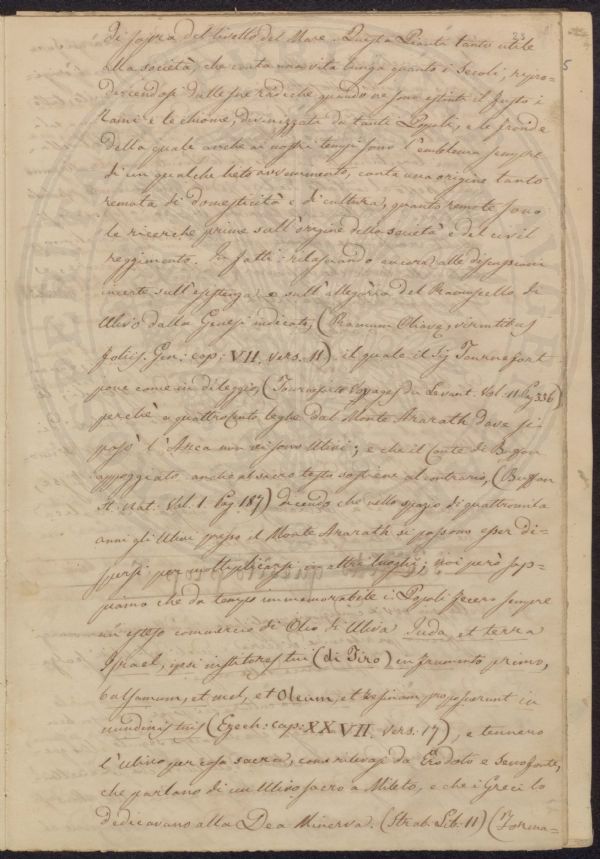 23
5
di sopra del livello del Mare. Questa Pianta tanto utile
alla società, che conta una vita lunga quanto i Secoli, ripro=
ducendosi dalle sue radiche quando ne sono estinti il fusto i
Rami e le chiome, divinizzata da tanti Popoli, e le fronde
della quale anche ai nostri tempi sono l'emblema sempre
di un qualche lieto avvenimento, conta una origine tanto
remota di domesticità e di cultura, quanto remote sono
le ricerche prime sull'origine della società e del civil
reggimento. In fatti rilasciando ancora alle discussioni
incerte sull'esistenza e sull'allegoria del Ramuscello di
Ulivo dalla Genesi indicato, (Ramum Olivae, virentibus
foliis. Gen: cap: VII. vers. 11) il quale il Sig Tournefort
pone come in dileggio, (Tournefort Voyages du Levant. Vol. 11 Pag 336)
perchè a quattrocento leghe dal Monte Ararath dove si
posò l'Arca non vi sono Ulivi; e che il Conte di Buffon
appoggiato anche al sacro testo sostiene al contrario, (Buffon
St. nat: Vol. 1. Pag 187) dicendo che nello spazio di quattromila
anni gli Ulivi presso il Monte Ararath si possono esser di=
spersi, per moltiplicarsi in altri luoghi; noi però sap=
piamo che da tempo immemorabile i Popoli fecero sempre
un esteso commercio di Olio di Uliva Juda, et terra
Israel, ipsi institores tui (di Tiro) in frumento primo,
balsamum, et mel, et Oleum, et resinam proposuerunt in
nundinis tuis (Ezech: cap: XXVII. vers. 17), e tennero
l'ulivo per cosa sacra, come rilevasi da Erodoto e Senofonte,
che parlano di un Ulivo sacro a Mileto, e che i Greci lo
dedicavano alla Dea Minerva. (Strab. Lib. 11)